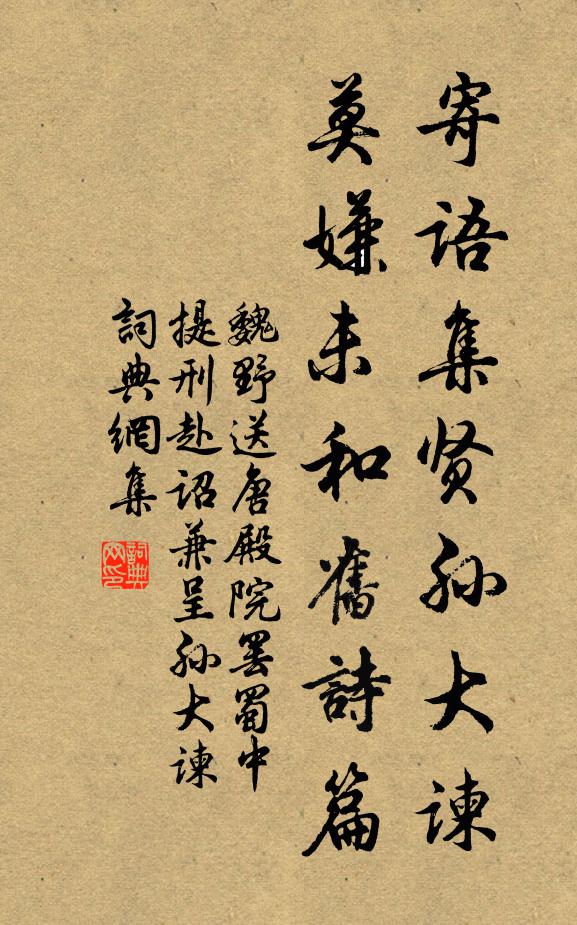 寄语集贤孙大谏
莫嫌未和旧詩篇
魏野送唐殿院罢蜀中
提刑赴诏兼呈孙大谏
詞典網集
詞典网印